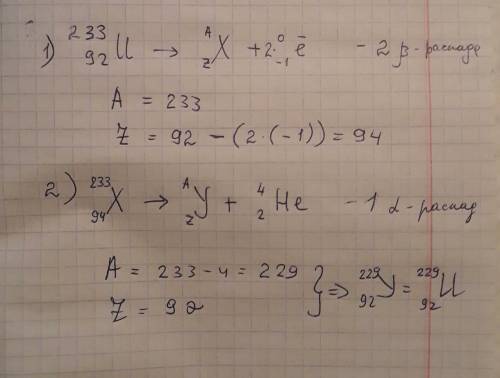 1) ²³³₉₂U → ᴬ_Z X + 2·⁰₋₁ē - 2 β-распада
A = 233
Z = 92 - (2·(-1)) = 94
2) ²³³₉₄X → ᴬ_Z Y + ⁴₂He - 1 α-распад
A = 233-4 = 229
Z = 92 } => ²²⁹₉₂Y = ²²⁹₉₂U